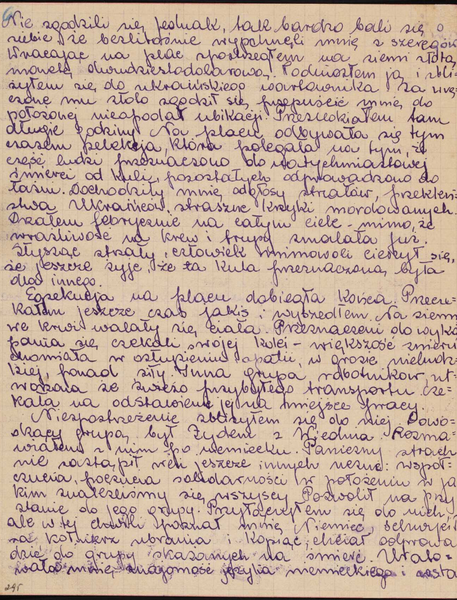 Nie zgodzili się jednak, tak bardzo bali się o
siebie że bezlitośnie wypchnęli mnie z szeregów
Wracając na plac spostrzegłem na ziemi złotą
monetę dwudziestodolarową. Podniosłem ją i zbli
żyłem się do ukraińskiego wartownika Za wrę
czone mu złoto zgodził się przepuścić mnie do
położonej nieopodal ubikacji. Przeczekałem tam
długie godziny Na placu odbywała się tym
czasem selekcja, która polegała na tym, że
część ludzi przeznaczono do natychmiastowej
śmierci od kuli, pozostałych odprowadzono do
łaźni. Dochodziły mnie odgłosy strzałów, przekleń
stwa Ukraińców, straszne krzyki mordowanych.
Drżałem febrycznie na całym ciele - mimo, że
wrażliwość na krew i trupy zmalała już.
Słysząc strzały, człowiek mimowoli cieszył się,
że jeszcze żyje, że ta kula przeznaczona była
dla innego.
Egzekucja na placu dobiegła końca. Przecze
kałem jeszcze czas jakiś i wyszedłem. Na ziemi
we krwi walały się ciała. Przeznaczeni do wyką
pania się czekali swojej kolei - większość znieru
chomiała w osłupieniu, apatii, w grozie nieludz
kiej, ponad siły. Inna grupa robotników, ut
worzona ze świeżo przybyłego transportu cze
kała na odstawienie jej na miejsce pracy.
Niespostrzeżenie zbliżyłem się do niej Dowo
dzący grupą, był Żydem z Wiednia. Rozma
wiałem z nim po niemiecku. Paniczny strach
nie zastąpił weń jeszcze innych uczuć: współ
czucia, poczucia solidarności w położeniu w ja
kim znaleźliśmy się wszyscy Pozwolił na przy
stanie do jego grupy. Przyłączyłem się do nich,
ale w tej chwili poznał mnie Niemiec, schwycił
za kołnierz ubrania i kopiąc, chciał odprowa
dzić do grupy skazanych na śmierć. Urato
wała mnie znajomość języka niemieckiego i